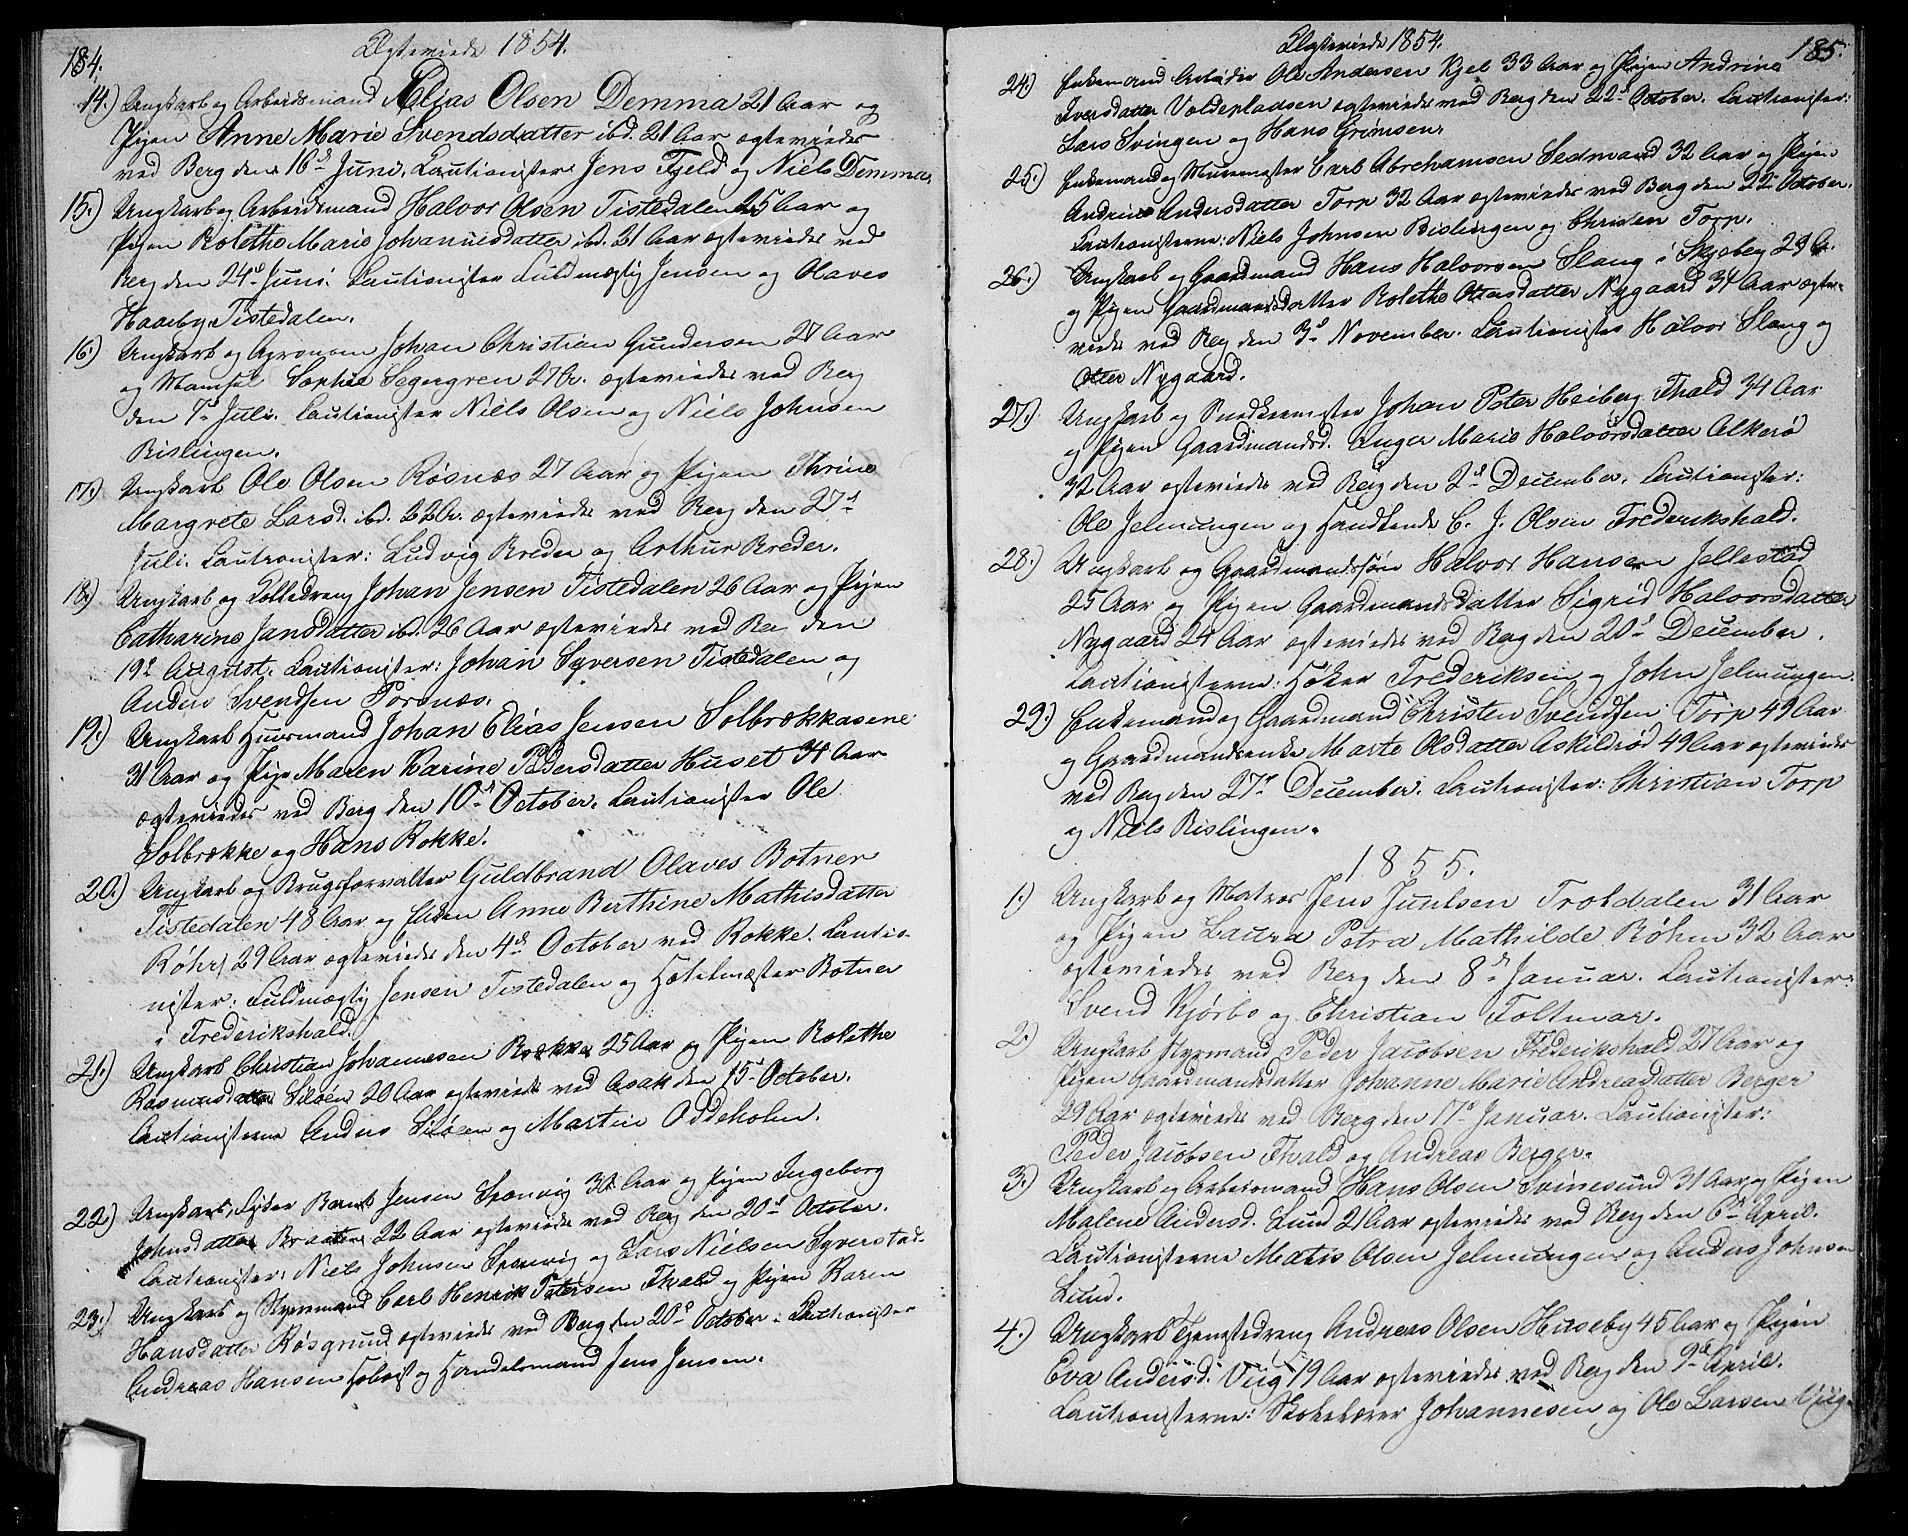 184.
Ægteviede 1854.
14.) Ungkarl og Arbeidsmand Elias Olsen Demma 21 Aar og
Pigen Anne Marie Svendsdatter ibd. 21 Aar ægteviede
ved Berg den 16d Juni. Cautionister Jens Fjeld og Niels Demma.
15.) Ungkarl og Arbeidsmand Halvor Olsen Tistedalen 25 Aar og
Pigen Bolethe Marie Johannesdatter ibd. 21 Aar ægteviede ved
Berg den 24d Juni. Cautionister Fuldmægtig Jensen og Olaves
Haaeby, Tistedalen.
16.) Ungkarl og Agronom Johan Christian Gundersen 27 Aar
og Mamsel Sophie Segergren 27 A. ægteviede ved Berg
den 7d Juli. Cautionister Niels Olsen og Niels Johnsen
Bislingen.
17.) Ungkarl Ole Olsen Røsnæs 27 Aar og Pigen Thrine
Margrete Larsd. ibd. 22 A. ægteviede ved Berg den 27d
Juli. Cautionister: Ludvig Breder og Arthur Breder.
18.) Ungkarl og Tolledreng Johan Jensen Tistedalen 26 Aar og Pigen
Catharine Jansdatter ibd. 26 Aar ægteviede ved Berg den
19d August. Cautionister: Johan Syversen Tistedalen og
Anders Svendsen Porsnæs.
19.) Ungkarl Huusmand Johan Elias Jensen Solbrækkasene
31 Aar og Pige Maren Karine Pedersdatter Huset 34 Aar
ægteviede ved Berg den 10d October. Cautionister Ole
Solbrække og Hans Rokke.
20.) Ungkarl og Brugsforvalter Guldbrand Olaves Botner
Tistedalen 48 Aar og Enken Anne Berthine Mathisdatter
Røhr 29 Aar ægteviede den 4d October ved Rokke. Cautio-
nister: Fuldmægtig Jensen Tistedalen og Hotelmester Botner
i Frederikshald.
21.) Ungkarl Christian Johannesen Brække 25 Aar og Pigen Bolethe
Rasmusdatter Liløen 20 Aar ægteviede ved Asak den 15d October.
Cautionisterne Anders Liløen og Martin Oddeholm.
22.) Ungkarl, Lyder Bernt Jensen Sponvig 30 Aar og Pigen Ingeborg
Johnsdatter Braaten 22 Aar ægteviede ved Berg den 20d October.
Cautionister: Niels Johnsen Sponvig og Lars Nielsen Syverstad.
23.) Ungkarl og Styrmand Carl Henrik Petersen Fhald og Pigen Karen
Hansdatter Røsgrund ægteviede ved Berg den 20d October. Cautionister
Andreas Hansen Hoboist og Handelsmand Jens Jensen.
Ægteviede 1854.
185.
24.) Enkemand Arbeider Ole Andersen Kjel 33 Aar og Pigen Andrine
Iversdatter Voldepladsen ægteviede ved Berg den 22d October. Cautionister:
Lars Svingen og Hans Grimsen.
25.) Enkemand og Murmester Carl Abrehamsen Sedmand 32 Aar og Pigen
Andrine Andersdatter Torp 32 Aar ægteviede ved Berg den 22d October.
Cautionisterne: Niels Johnsen Bislingen og Christen Torp.
26.) Ungkarl og Gaardmand Hans Halvorsen Slang i Skjeberg 29 A.
og Pigen Gaardmandsdatter Bolethe Ottersdatter Nygaard 34 Aar ægte-
viede ved Berg den 3d November. Cautionister Halvor Slang og
Otter Nygaard.
27.) Ungkarl og Snedkermester Johan Peter Heiberg Fhald 34 Aar
og Pigen Gaardmandsd. Anger Marie Halvorsdatter Alkerø
32 Aar ægteviede ved Berg den 2d December. Cautionister:
Ole Jelmungen og Handlende C. J. Olsen Frederikshald.
28.) Ungkarl og Gaardmandssøn Halvor Hansen Jellestad
25 Aar og Pigen Gaardmandsdatter Sigrid Halvorsdatter
Nygaard 24 Aar ægteviede ved Berg den 20d December.
Cautionisterne: Høker Frederiksen og John Jelmungen.
29.) Enkemand og Gaardmand Christen Svendsen Torp 49 Aar
og Gaardmandsenke Marte Olsdatter Askildrød 49 Aar ægteviede
ved Berg den 27d December. Cautionister: Christian Torp
og Niels Bislingen.
1855.
1.) Ungkarl og Matros Jens Juulsen Troldalen 31 Aar
og Pigen Laura Petra Mathilde Bøhm 32 Aar
ægteviedes ved Berg den 8d Januar. Cautionister:
Svend Kjørbo og Christian Foltmar.
2.) Ungkarl Styrmand Peder Jacobsen Frederikshald 27 Aar og
Pigen Gaardmandsdatter Johanne Marie Andreasdatter Berger
29 Aar ægteviede ved Berg den 17d Januar. Cautionister:
Peder Jacobsen Fhald og Andreas Berger.
3.) Ungkarl og Arbeidsmand Hans Olsen Svinesund 31 Aar og Pigen
Malene Andersd. Lund 21 Aar ægteviede ved Berg den 6d April.
Cautionisterne Mathis Olsen Jelmungen og Anders Johnsen
Lund.
4.) Ungkarl Tjenestedreng Andreas Olsen Huseby 45 Aar og Pigen
Eva Andersd. Viig 19 Aar ægteviede ved Berg den 9d April.
Cautionisterne: Skolelærer Johannesen og Ole Larsen Viig.